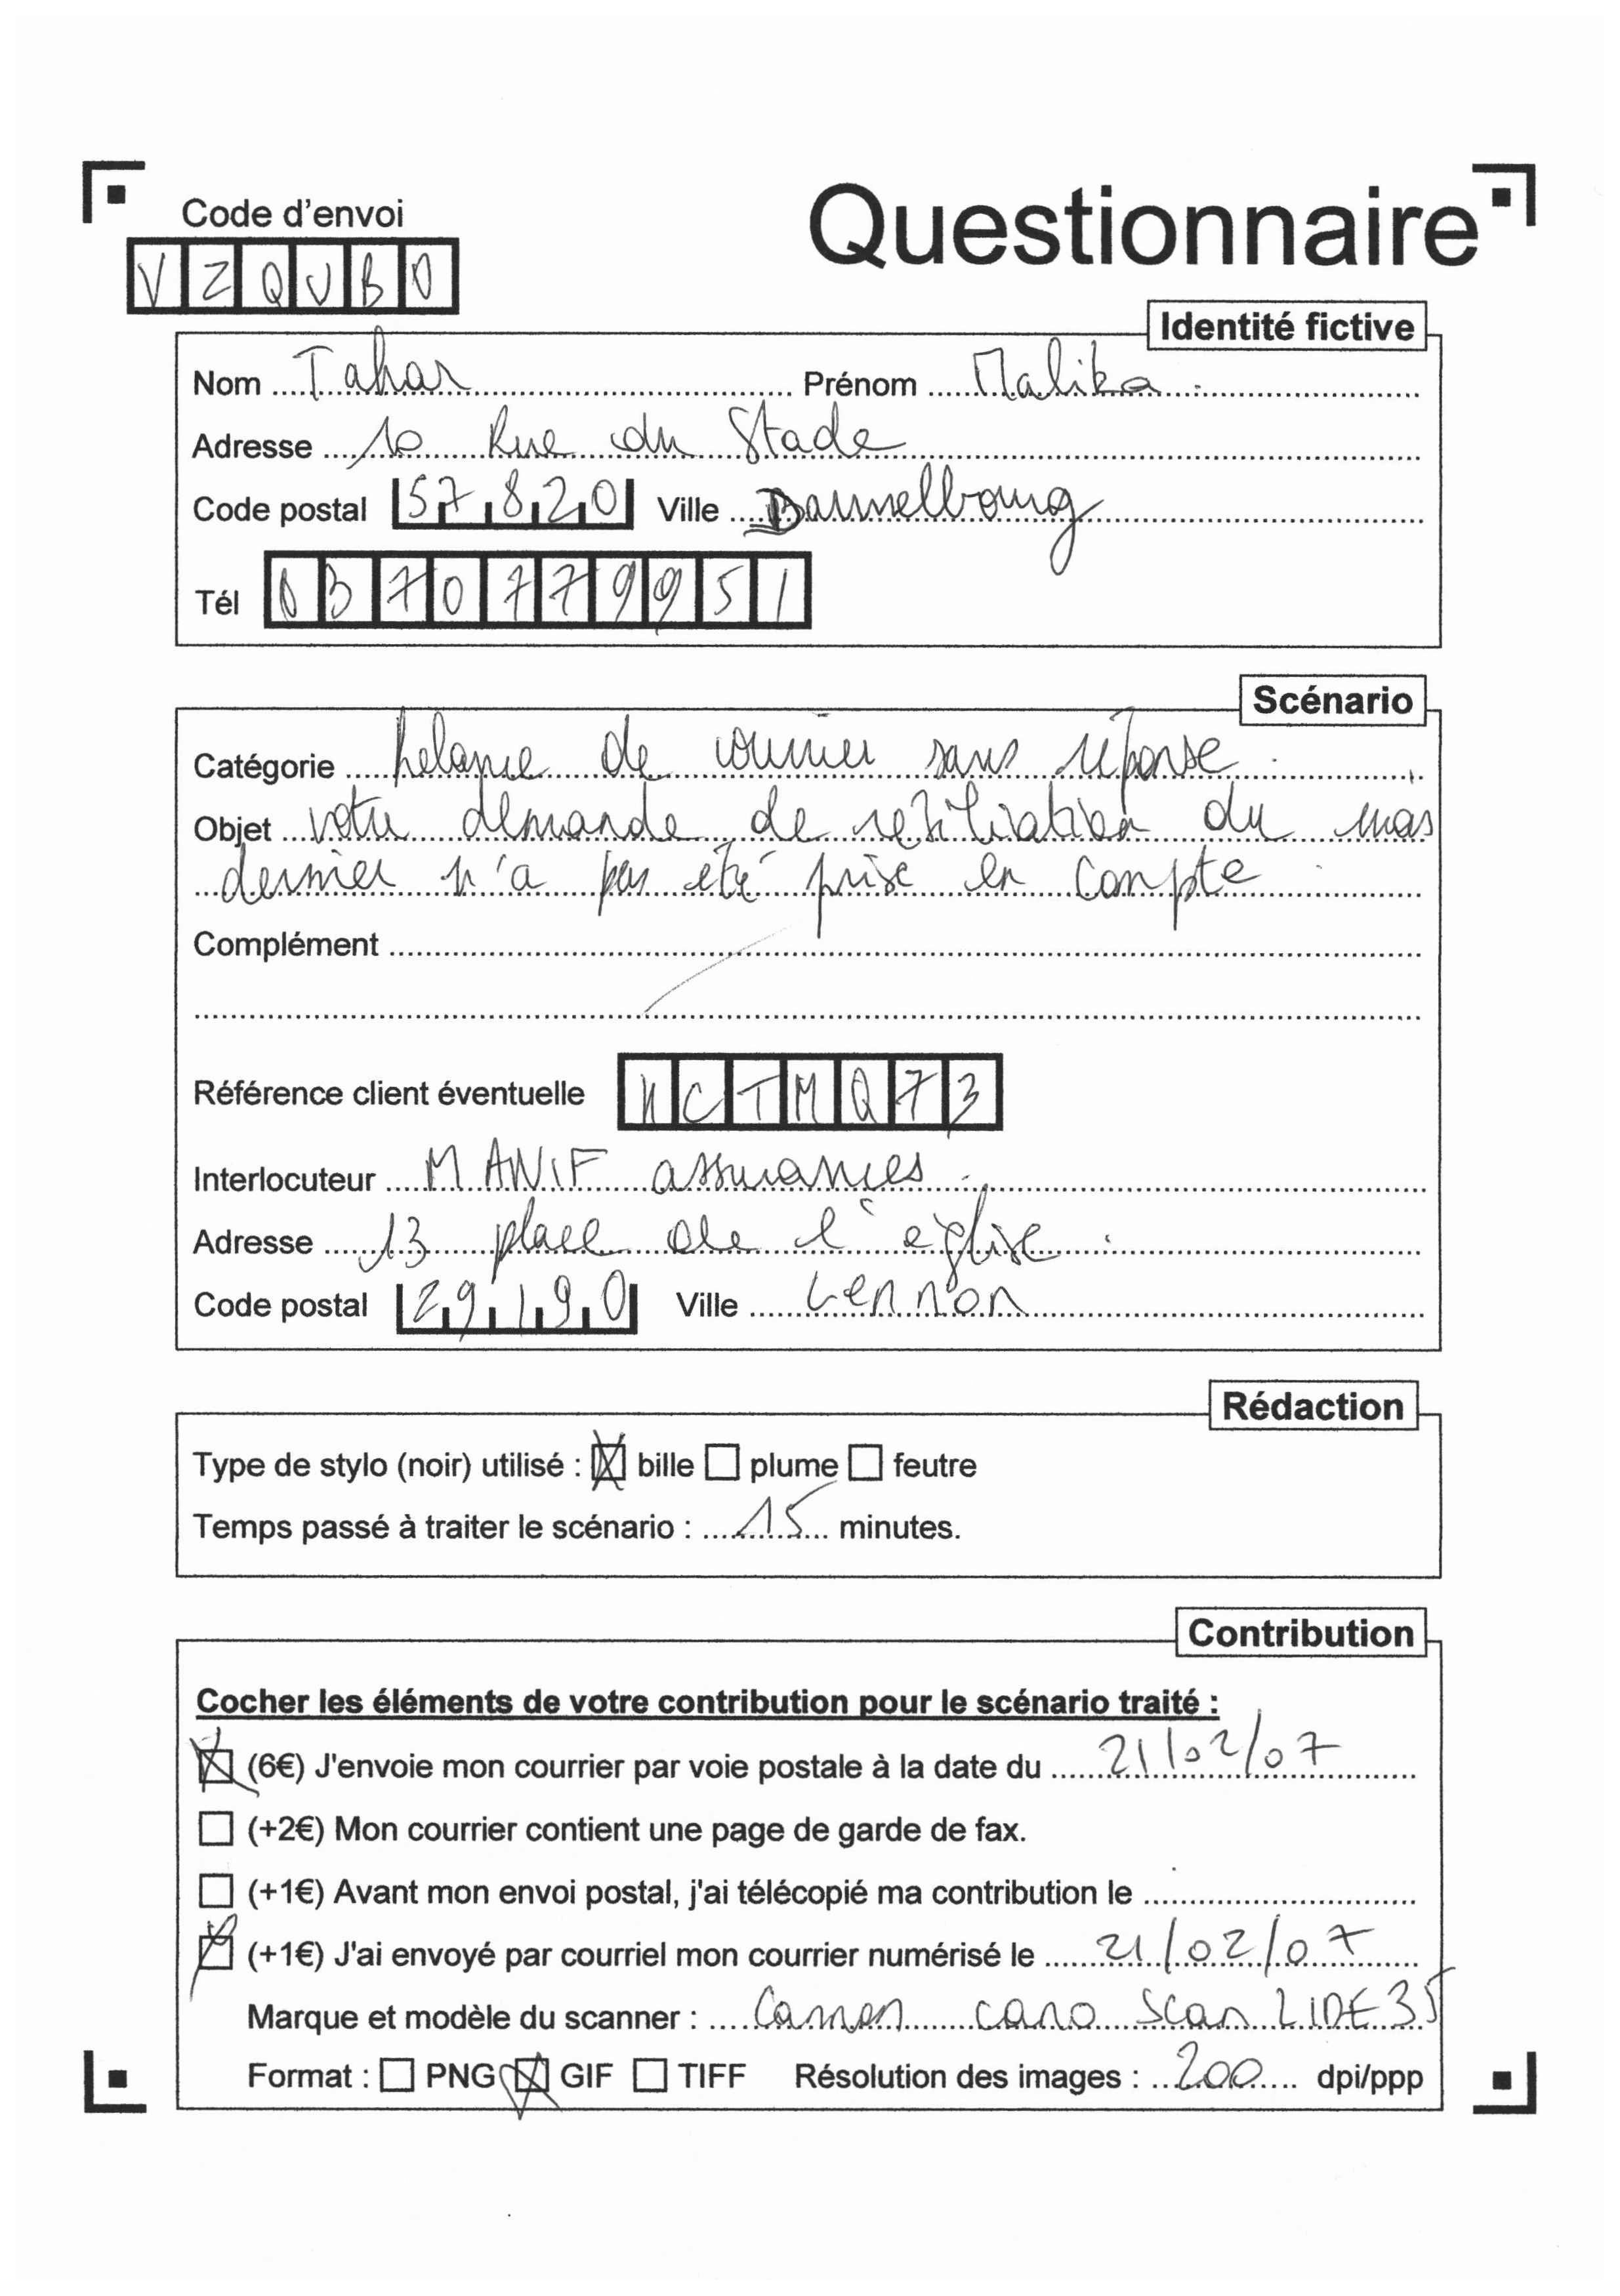 Code d'envoi
Questionnaire
V Z Q U B O
Identité fictive
Nom Tahar Prénom Malika
Adresse 10 Rue du Stade
Code postal 57820 Ville Dannelbourg
Tél 0370779951
Scénario
Catégorie Relance de courrier sans réponse
Objet votre demande de résiliation du mois
dernier n'a pas été prise en compte
Complément
Référence client éventuelle CTMQ73
Interlocuteur MANIF assurances
Adresse 13 place de l'église
Code postal 29190 Ville Lennon
Rédaction
Type de stylo (noir) utilisé : bille plume feutre
Temps passé à traiter le scénario : 15 minutes.
Contribution
Cocher les éléments de votre contribution pour le scénario traité :
(6€) J'envoie mon courrier par voie postale à la date du 21/02/07
(+2€) Mon courrier contient une page de garde de fax.
(+1€) Avant mon envoi postal, j'ai télécopié ma contribution le
(+1€) J'ai envoyé par courriel mon courrier numérisé le 21/02/07
Marque et modèle du scanner : Cannon cano Scan LIDE 35
Format : PNG GIF TIFF Résolution des images : 200 dpi/ppp